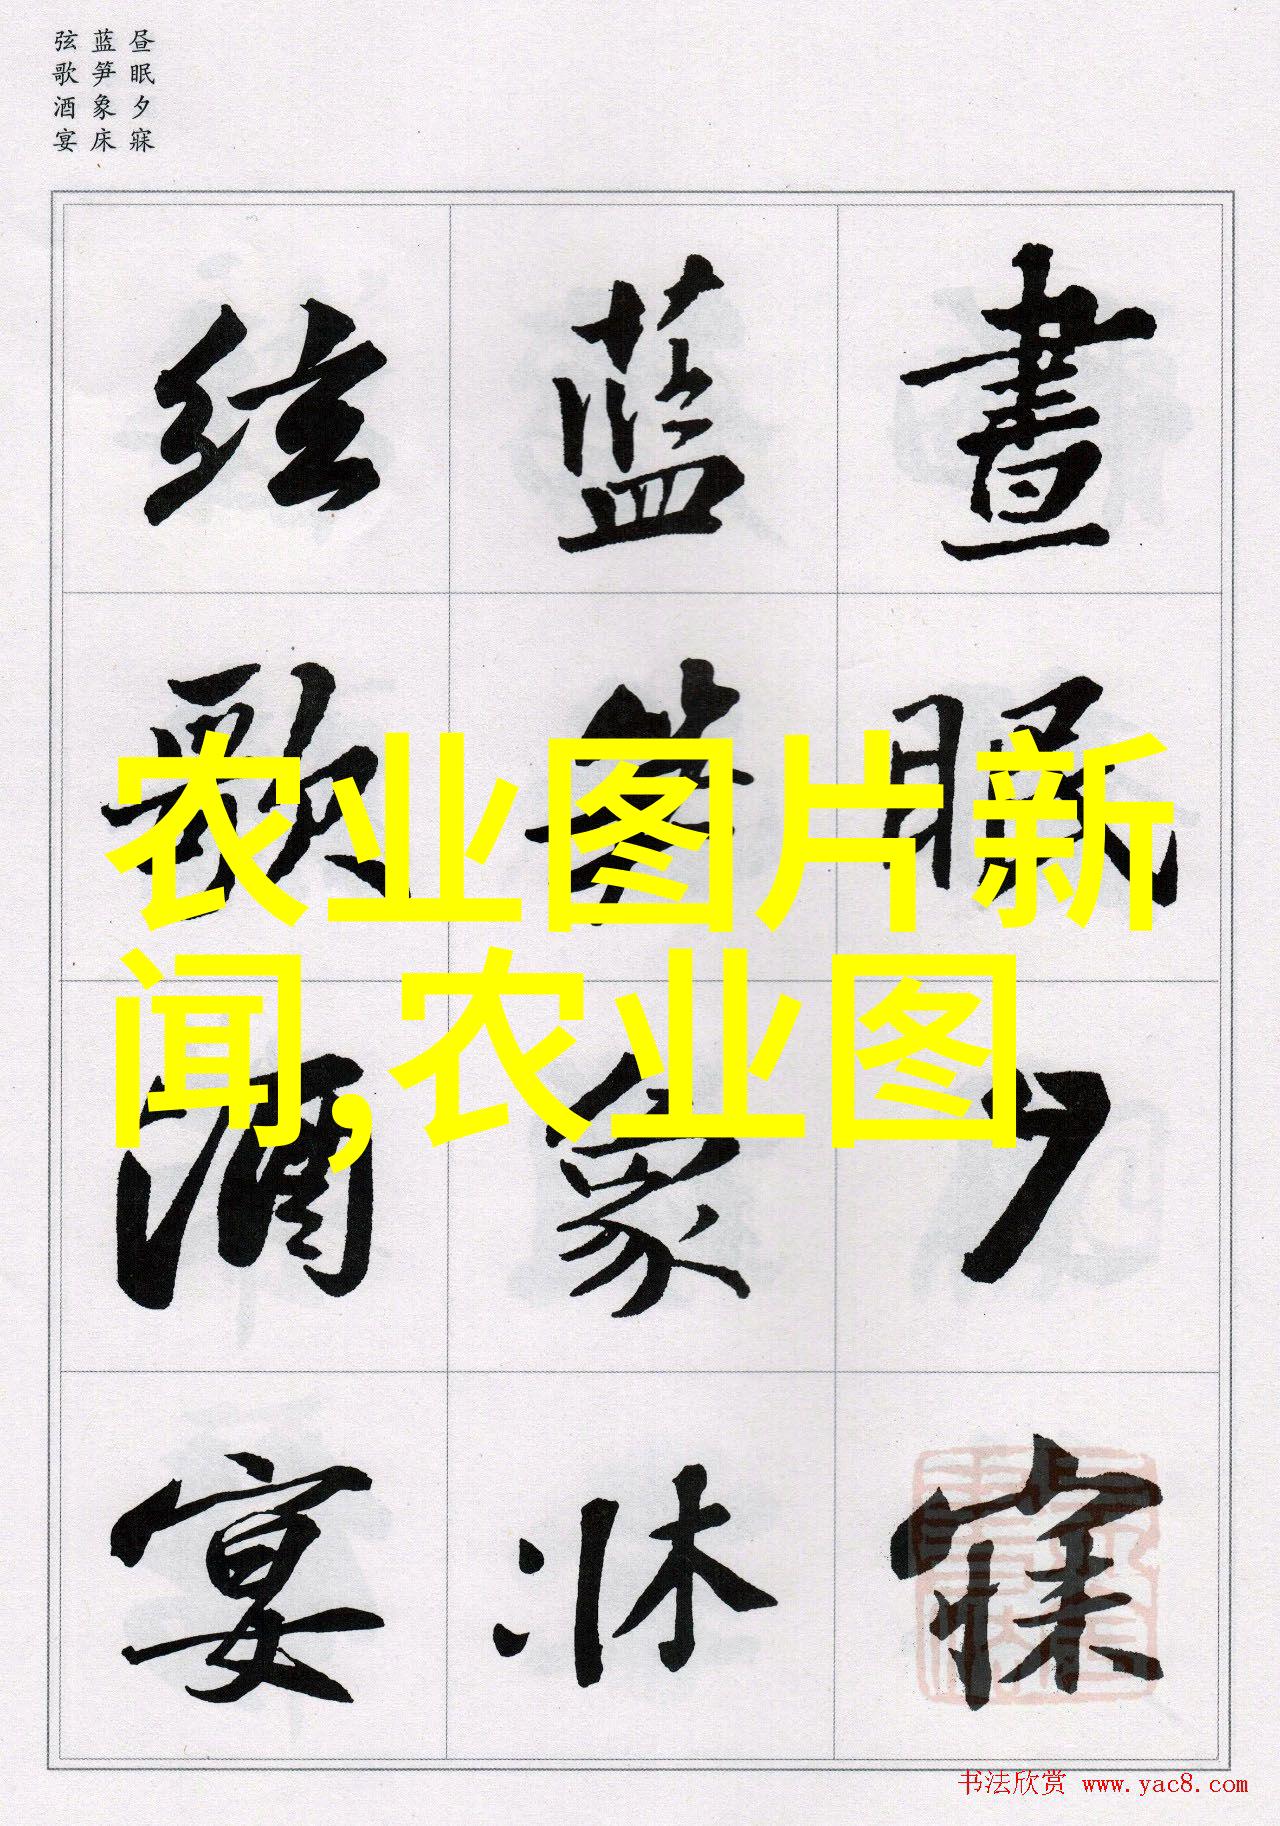 昼眠夕寐
蓝笋象床
弦歌酒宴
晝眠夕寐
蓝笋象牀
弦歌酒宴
农业图片新
闻,农业图
书法欣赏 www.yac8.com